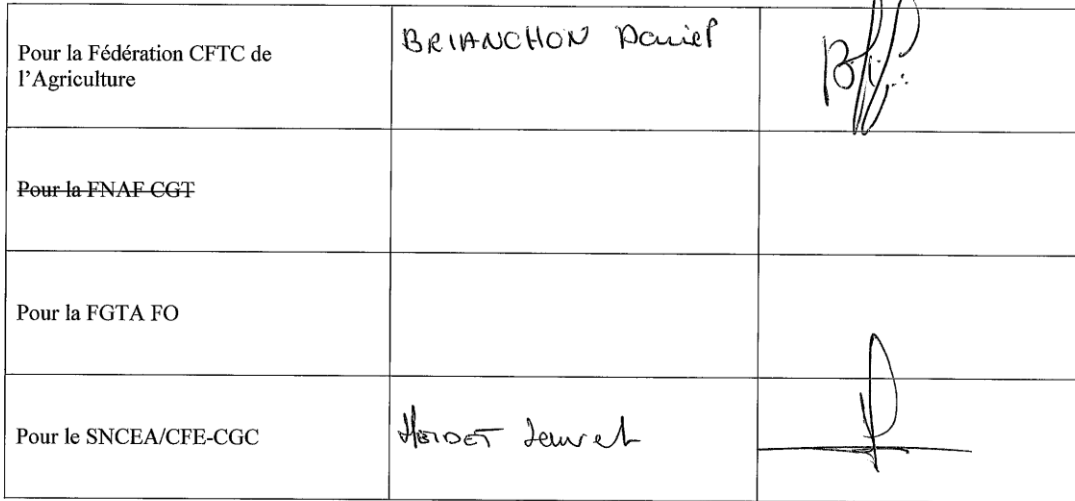 Pour la Fédération CFTC de
l'Agriculture
BRIANCHON Daniel
Pour la FNAF CGT
Pour la FGTA FO
Pour le SNCEA/CFE-CGC